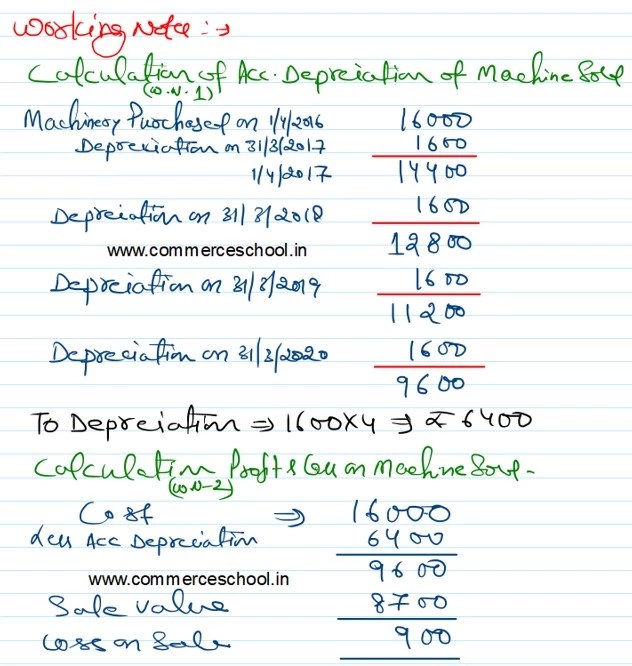 Working Note :→
Calculation of Acc. Depreciation of Machine Sold
(W.N. 1)
Machinery Purchased on 1/4/2016 16000
Depreciation on 31/3/2017 1600
1/4/2017 14400
Depreciation on 31/3/2018 1600
www.commerceschool.in 12800
Depreciation on 31/3/2019 1600
11200
Depreciation on 31/3/2020 1600
9600
To Depreciation ⇒ 1600X4 ⇒ ₹ 6400
Calculation Profit & Loss on Machine Sold -
(W.N-2)
Cost ⇒ 16000
Less Acc Depreciation 6400
www.commerceschool.in 9600
Sale value 8700
Loss on Sale 900